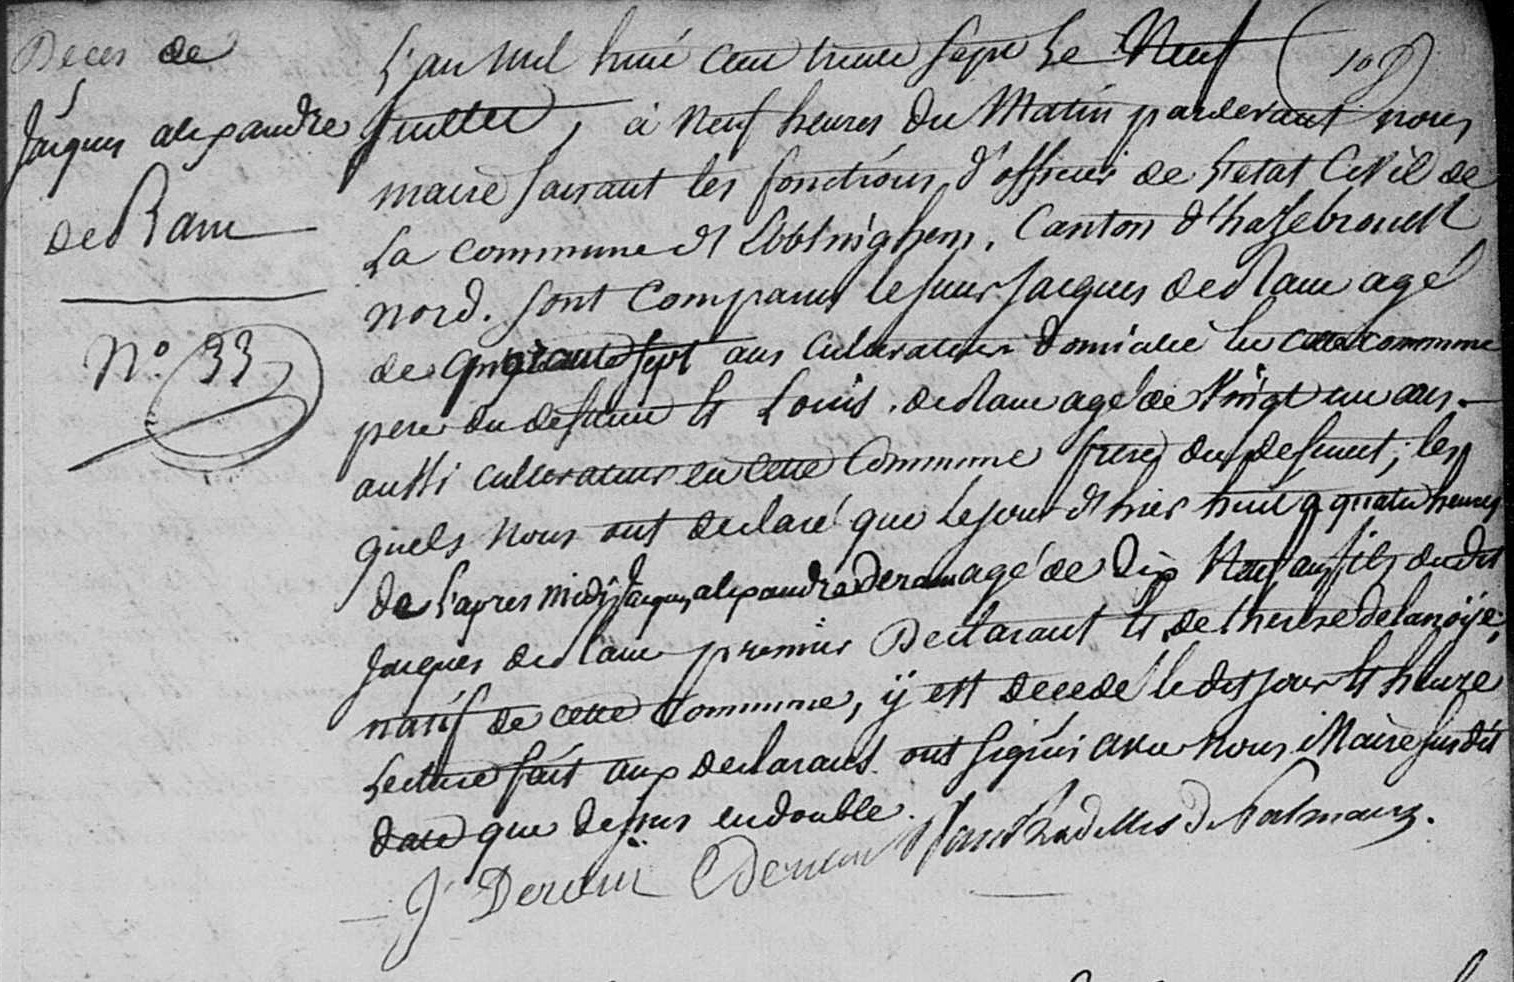 Deces de
Jacques alexandre
de Ram
N.° 33
L'an mil huit cent trente sept le Neuf
Juillet, à Neuf heures du Matin pardevant nous
maire faisant les fonctions d'officier de L'etat Civil de
La commune d'Ebblinghem, Canton d'hazebrouck
nord. sont comparus le sieur Jacques deRam agé
de quarante sept ans Cultivateur domicilié en cette commune
pere du defunt et Louis deRam agé de Vingt un ans
aussi cultivateur en cette Commune frere du defunt; les
quels nous ont declaré que le jour d'hier huit a quatre heures
de L'apres midi Jacques alexandre deram agé de dix Neuf ans fils du dit
Jacques deRam premier Declarant et de therese delanoÿe
natif de cette Commune, ÿ est decedé le dit jour et heure
Lecture fait aux declarants ont signés avec nous Maire susdit
date que dessus en double.
J Deram Deram